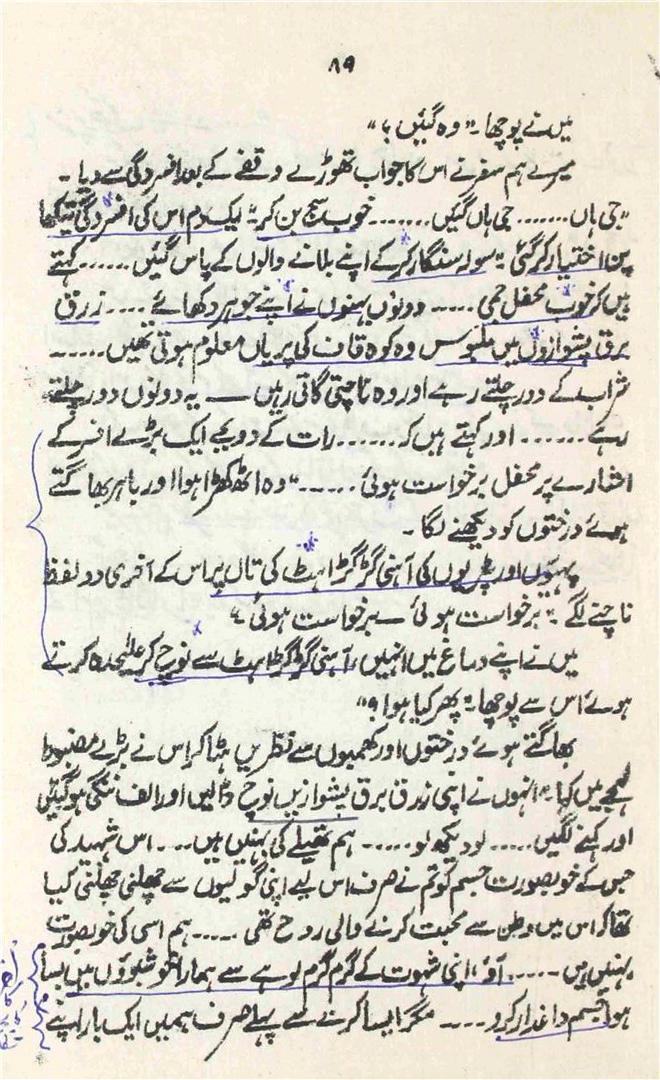 ۸۹
میں نے پوچھا۔ ”وہ گئیں؟“
میرے ہم سفر نے اس کا جواب تھوڑے وقفے کے بعد افسردگی سے دیا۔
”جی ہاں ....... جی ہاں گئیں ....... خوب سج بن کر“۔ ایک دم اس کی افسردگی تیکھا
پن اختیار کر گئی۔ ”سولہ سنگار کر کے اپنے بلانے والوں کے پاس گئیں ...... کہتے
ہیں کہ خوب محفل جمی ..... دونوں بہنوں نے اپنے جوہر دکھائے .... زرق
برق پشوازوں میں ملبوس وہ کوہ قاف کی پریاں معلوم ہوتی تھیں ......
شراب کے دور چلتے رہے اور وہ ناچتی گاتی رہیں — یہ دونوں دور چلتے
رہے ...... اور کہتے ہیں کہ ...... رات کے دو بجے ایک بڑے افسر کے
اشارے پر محفل برخواست ہوئی ......“ وہ اٹھ کھڑا ہوا اور باہر بھاگتے
ہوئے درختوں کو دیکھنے لگا۔
پہیوں اور پٹریوں کی آہنی گڑگڑاہٹ کی تال پر اس کے آخری دو لفظ
ناچنے لگے۔ ”برخواست ہوئی — برخواست ہوئی“
میں نے اپنے دماغ میں انہیں، آہنی گڑگڑاہٹ سے نوچ کر علیحدہ کرتے
ہوئے اس سے پوچھا۔ ”پھر کیا ہوا؟“
بھاگتے ہوئے درختوں اور کھمبوں سے نظریں ہٹا کر اس نے بڑے مضبوط
لہجے میں کہا۔ ”انہوں نے اپنی زرق برق پشوازیں نوچ ڈالیں اور الف ننگی ہوگئیں
اور کہنے لگیں ..... لو دیکھ لو ..... ہم تھیلے کی بہنیں ہیں .... اس شہید کی
جس کے خوبصورت جسم کو تم نے صرف اس لیے اپنی گولیوں سے چھلنی چھلنی کیا
تھا کہ اس میں وطن سے محبت کرنے والی روح تھی ..... ہم اسی کی خوبصورت
بہنیں ہیں ...... آؤ، اپنی شہوت کے گرم گرم لوہے سے ہمارا خوشبوؤں میں بسا
ہوا جسم داغدار کرو .... مگر ایسا کرنے سے پہلے صرف ہمیں ایک بار اپنے